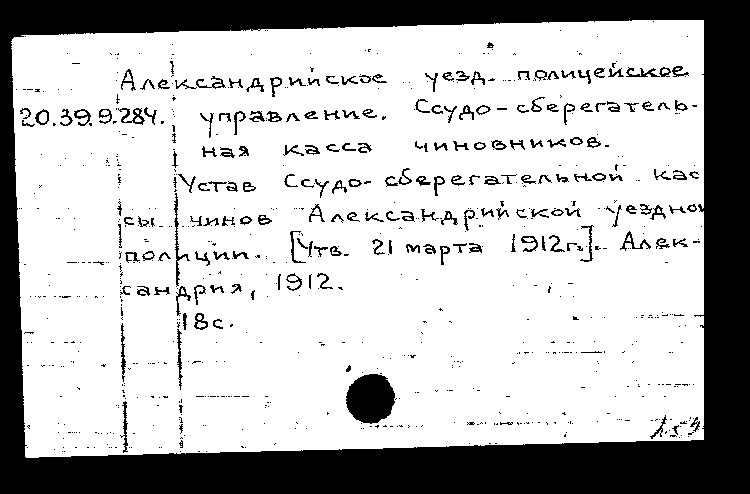 Александрийское уезд. полицейское
20.39.9.284. управление. Ссудо-сберегатель-
ная касса чиновников.
Устав Ссудо-сберегательной кас
сы чинов Александрийской уездной
полиции. [Утв. 21 марта 1912г.]. Алек-
сандрия, 1912.
18с.